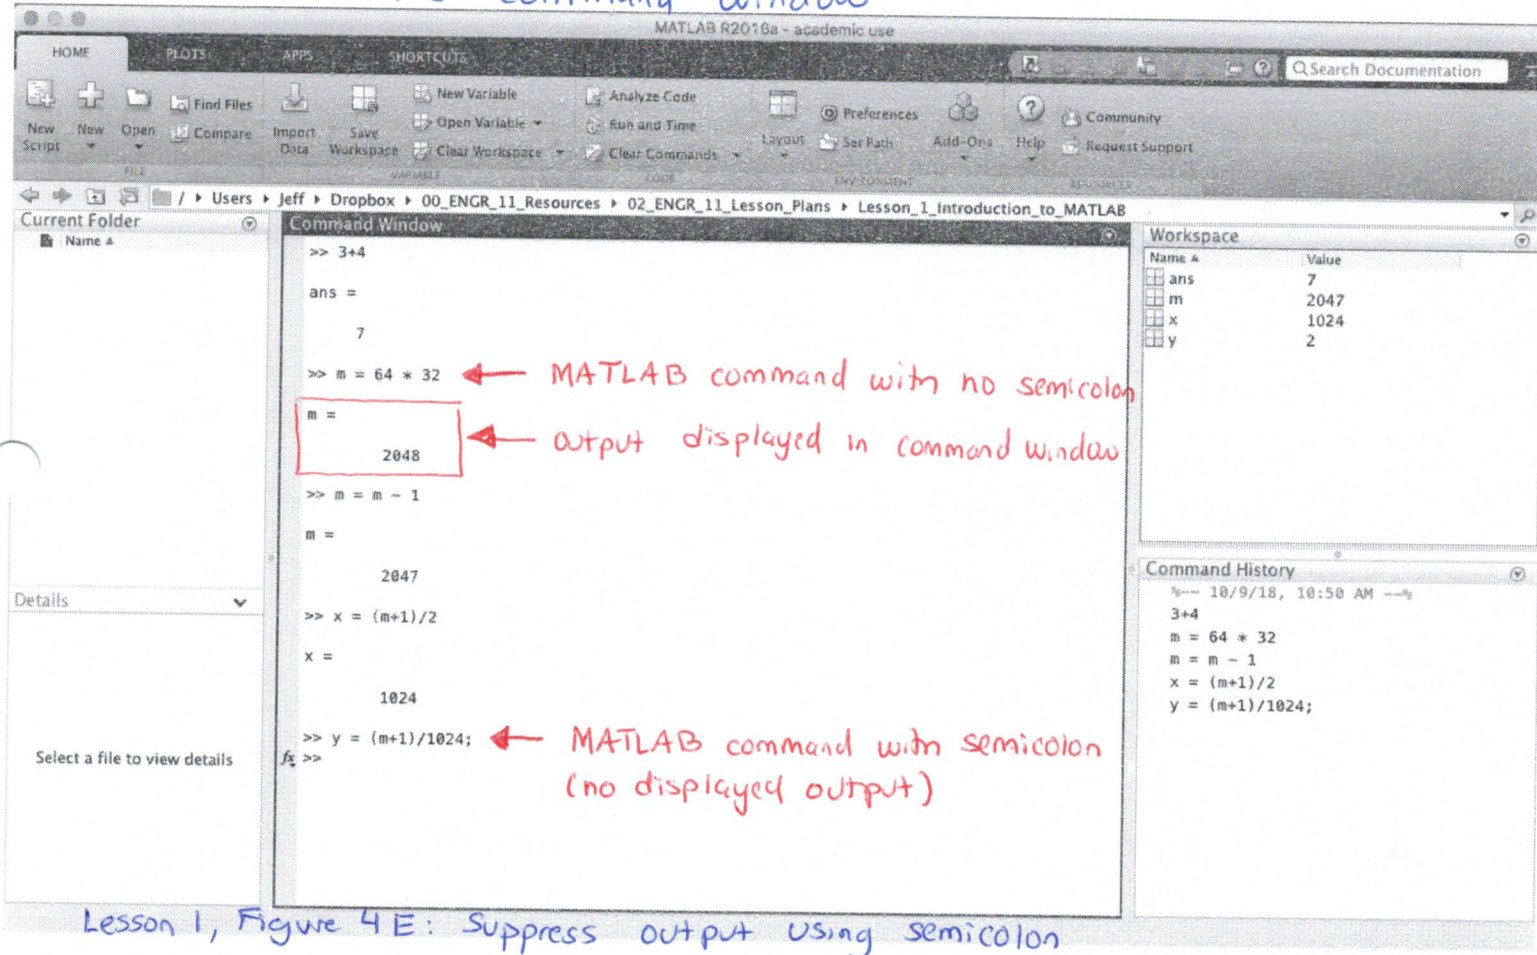 command window
MATLAB R2016a - academic use
HOME PLOTS APPS SHORTCUTS
Search Documentation
New Script
New
Open
Find Files
Compare
FILE
Import Data
Save Workspace
New Variable
Open Variable
Clear Workspace
VARIABLE
Analyze Code
Run and Time
Clear Commands
CODE
Layout
Preferences
Set Path
ENVIRONMENT
Add-Ons
Help
Community
Request Support
RESOURCES
/ ▸ Users ▸ Jeff ▸ Dropbox ▸ 00_ENGR_11_Resources ▸ 02_ENGR_11_Lesson_Plans ▸ Lesson_1_Introduction_to_MATLAB
Current Folder
Name
Details
Select a file to view details
Command Window
>> 3+4
ans =
7
>> m = 64 * 32
MATLAB command with no semicolon
m =
2048
output displayed in command window
>> m = m - 1
m =
2047
>> x = (m+1)/2
x =
1024
>> y = (m+1)/1024;
MATLAB command with semicolon
(no displayed output)
fx >>
Workspace
Name Value
ans 7
m 2047
x 1024
y 2
Command History
%-- 10/9/18, 10:50 AM --%
3+4
m = 64 * 32
m = m - 1
x = (m+1)/2
y = (m+1)/1024;
Lesson 1, Figure 4E: Suppress output using semicolon